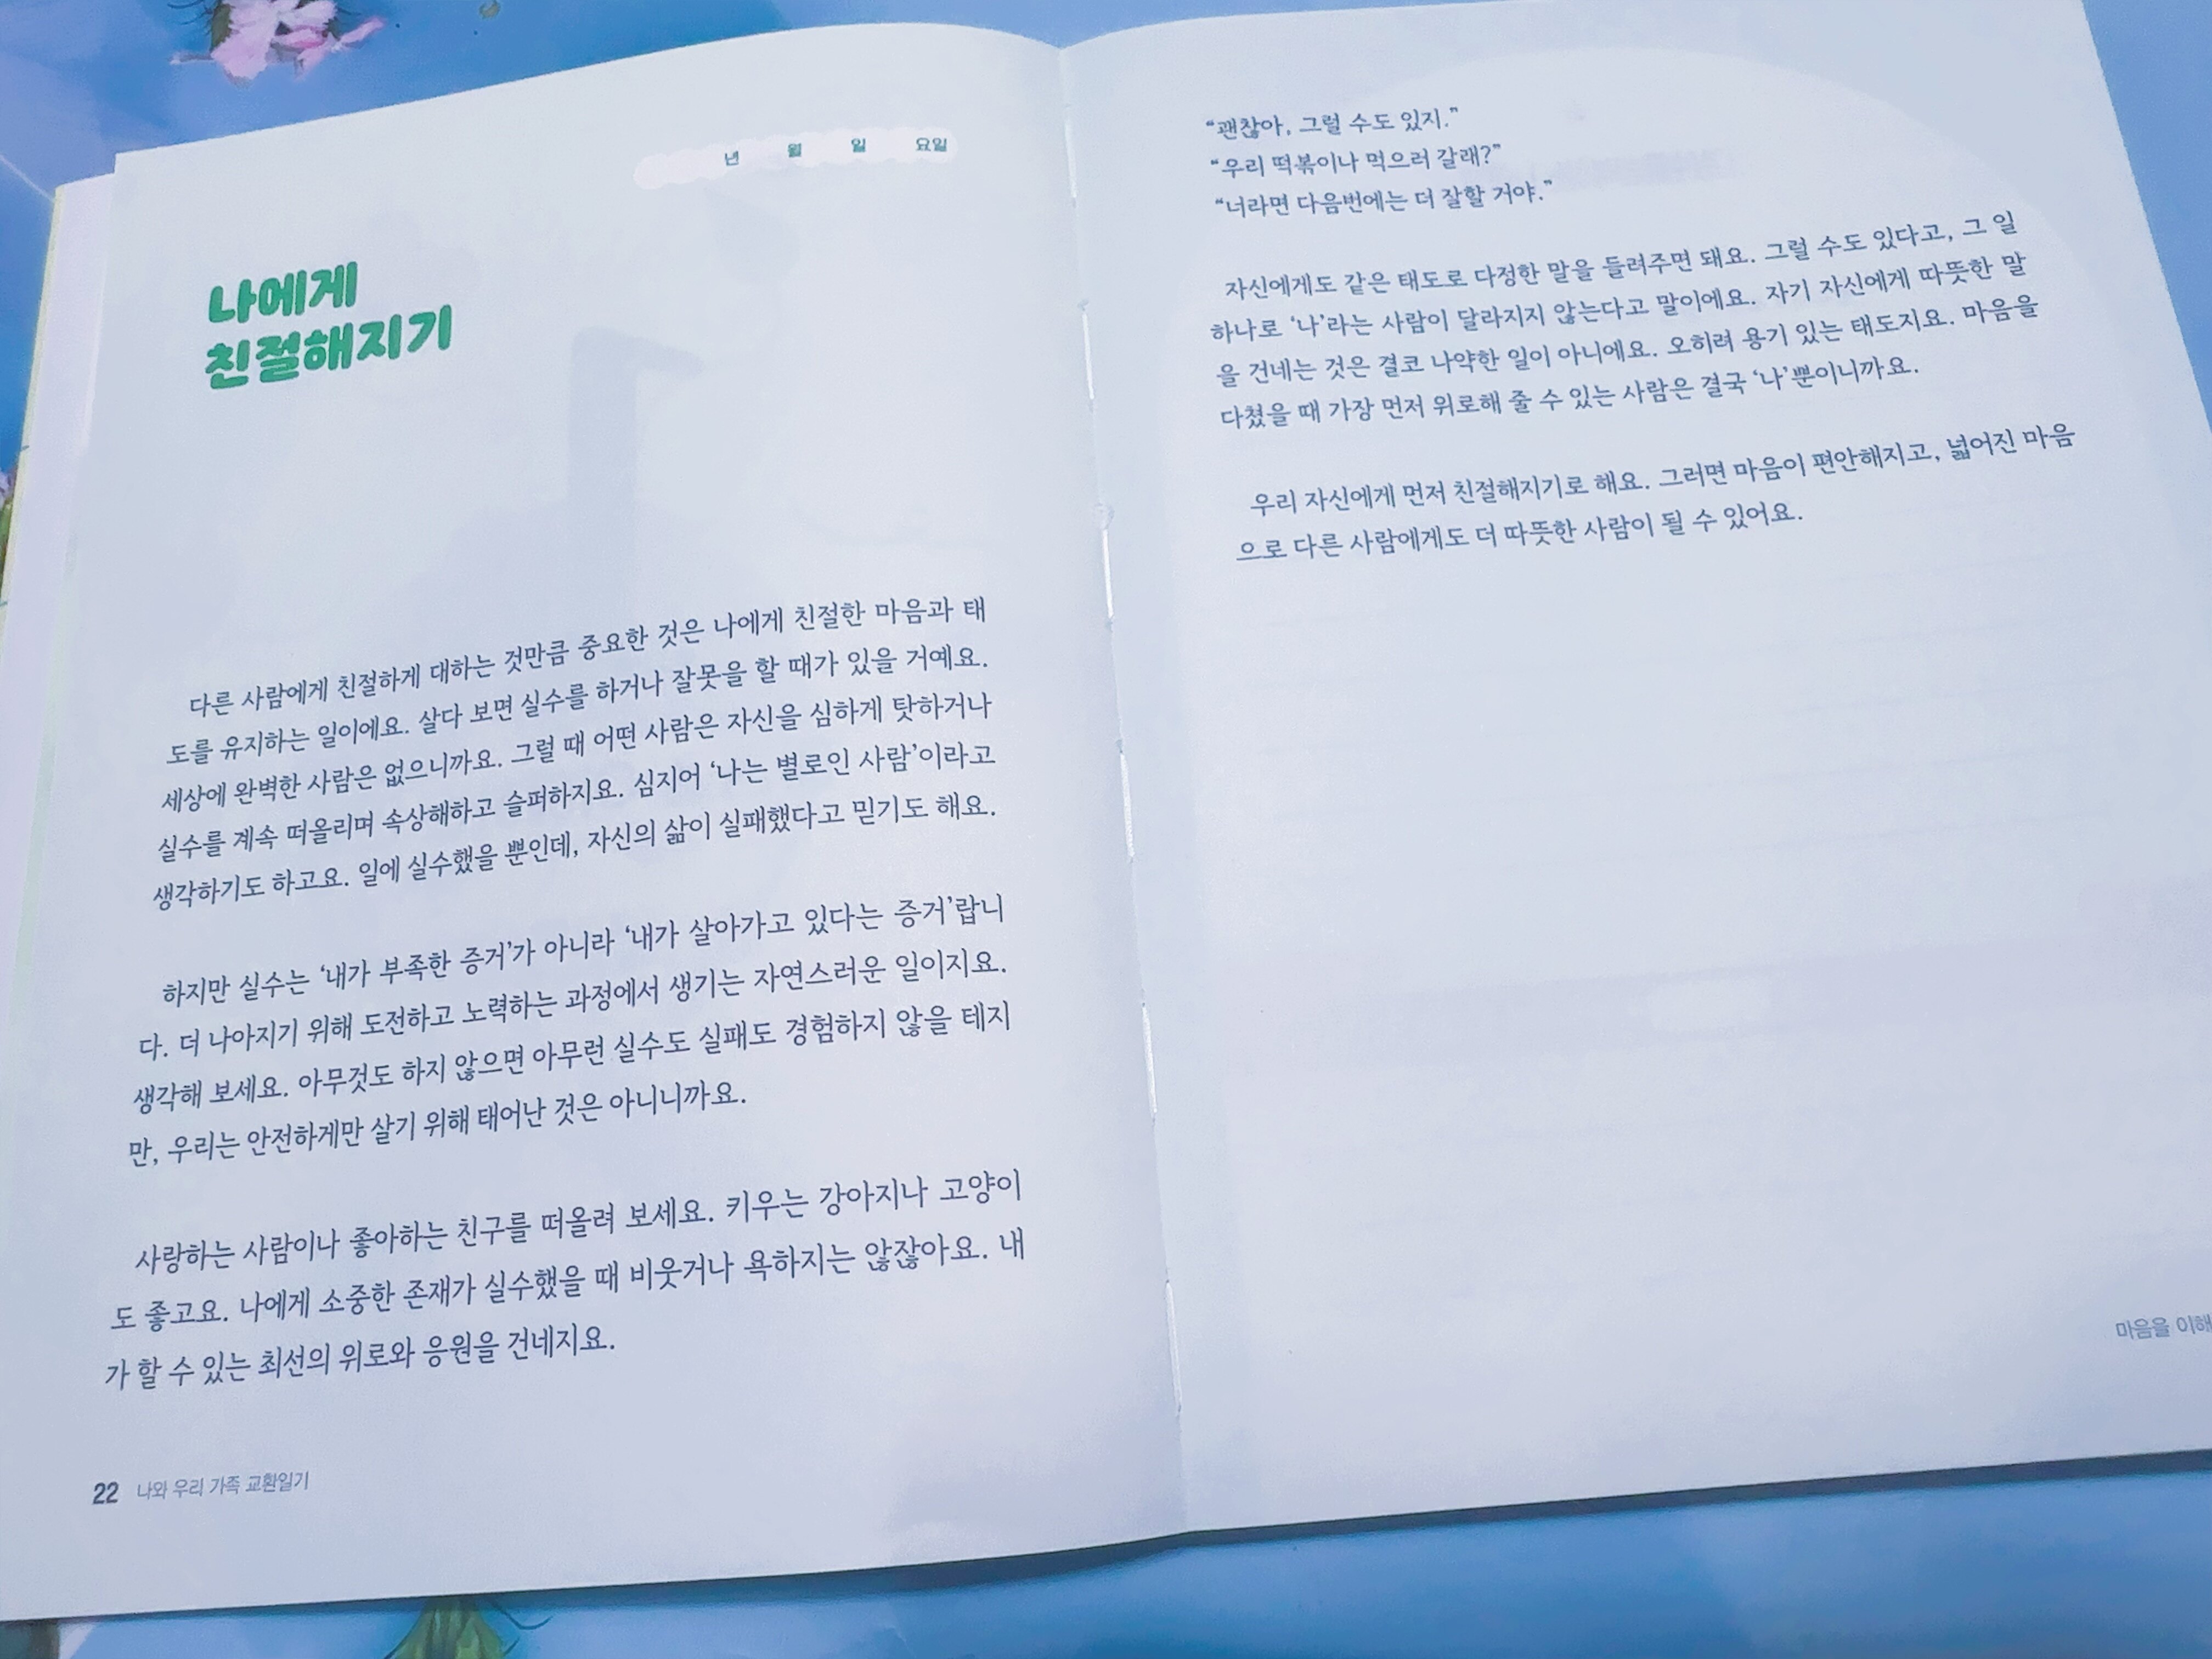 년 월 일 요일
나에게
친절해지기
다른 사람에게 친절하게 대하는 것만큼 중요한 것은 나에게 친절한 마음과 태
도를 유지하는 일이에요. 살다 보면 실수를 하거나 잘못을 할 때가 있을 거예요.
세상에 완벽한 사람은 없으니까요. 그럴 때 어떤 사람은 자신을 심하게 탓하거나
실수를 계속 떠올리며 속상해하고 슬퍼하지요. 심지어 ‘나는 별로인 사람’이라고
생각하기도 하고요. 일에 실수했을 뿐인데, 자신의 삶이 실패했다고 믿기도 해요.
하지만 실수는 ‘내가 부족한 증거’가 아니라 ‘내가 살아가고 있다는 증거’랍니
다. 더 나아지기 위해 도전하고 노력하는 과정에서 생기는 자연스러운 일이지요.
생각해 보세요. 아무것도 하지 않으면 아무런 실수도 실패도 경험하지 않을 테지
만, 우리는 안전하게만 살기 위해 태어난 것은 아니니까요.
사랑하는 사람이나 좋아하는 친구를 떠올려 보세요. 키우는 강아지나 고양이
도 좋고요. 나에게 소중한 존재가 실수했을 때 비웃거나 욕하지는 않잖아요. 내
가 할 수 있는 최선의 위로와 응원을 건네지요.
22 나와 우리 가족 교환일기
“괜찮아, 그럴 수도 있지.”
“우리 떡볶이나 먹으러 갈래?”
“너라면 다음번에는 더 잘할 거야.”
자신에게도 같은 태도로 다정한 말을 들려주면 돼요. 그럴 수도 있다고, 그 일
하나로 ‘나’라는 사람이 달라지지 않는다고 말이에요. 자기 자신에게 따뜻한 말
을 건네는 것은 결코 나약한 일이 아니에요. 오히려 용기 있는 태도지요. 마음을
다쳤을 때 가장 먼저 위로해 줄 수 있는 사람은 결국 ‘나’뿐이니까요.
우리 자신에게 먼저 친절해지기로 해요. 그러면 마음이 편안해지고, 넓어진 마음
으로 다른 사람에게도 더 따뜻한 사람이 될 수 있어요.
마음을 이해